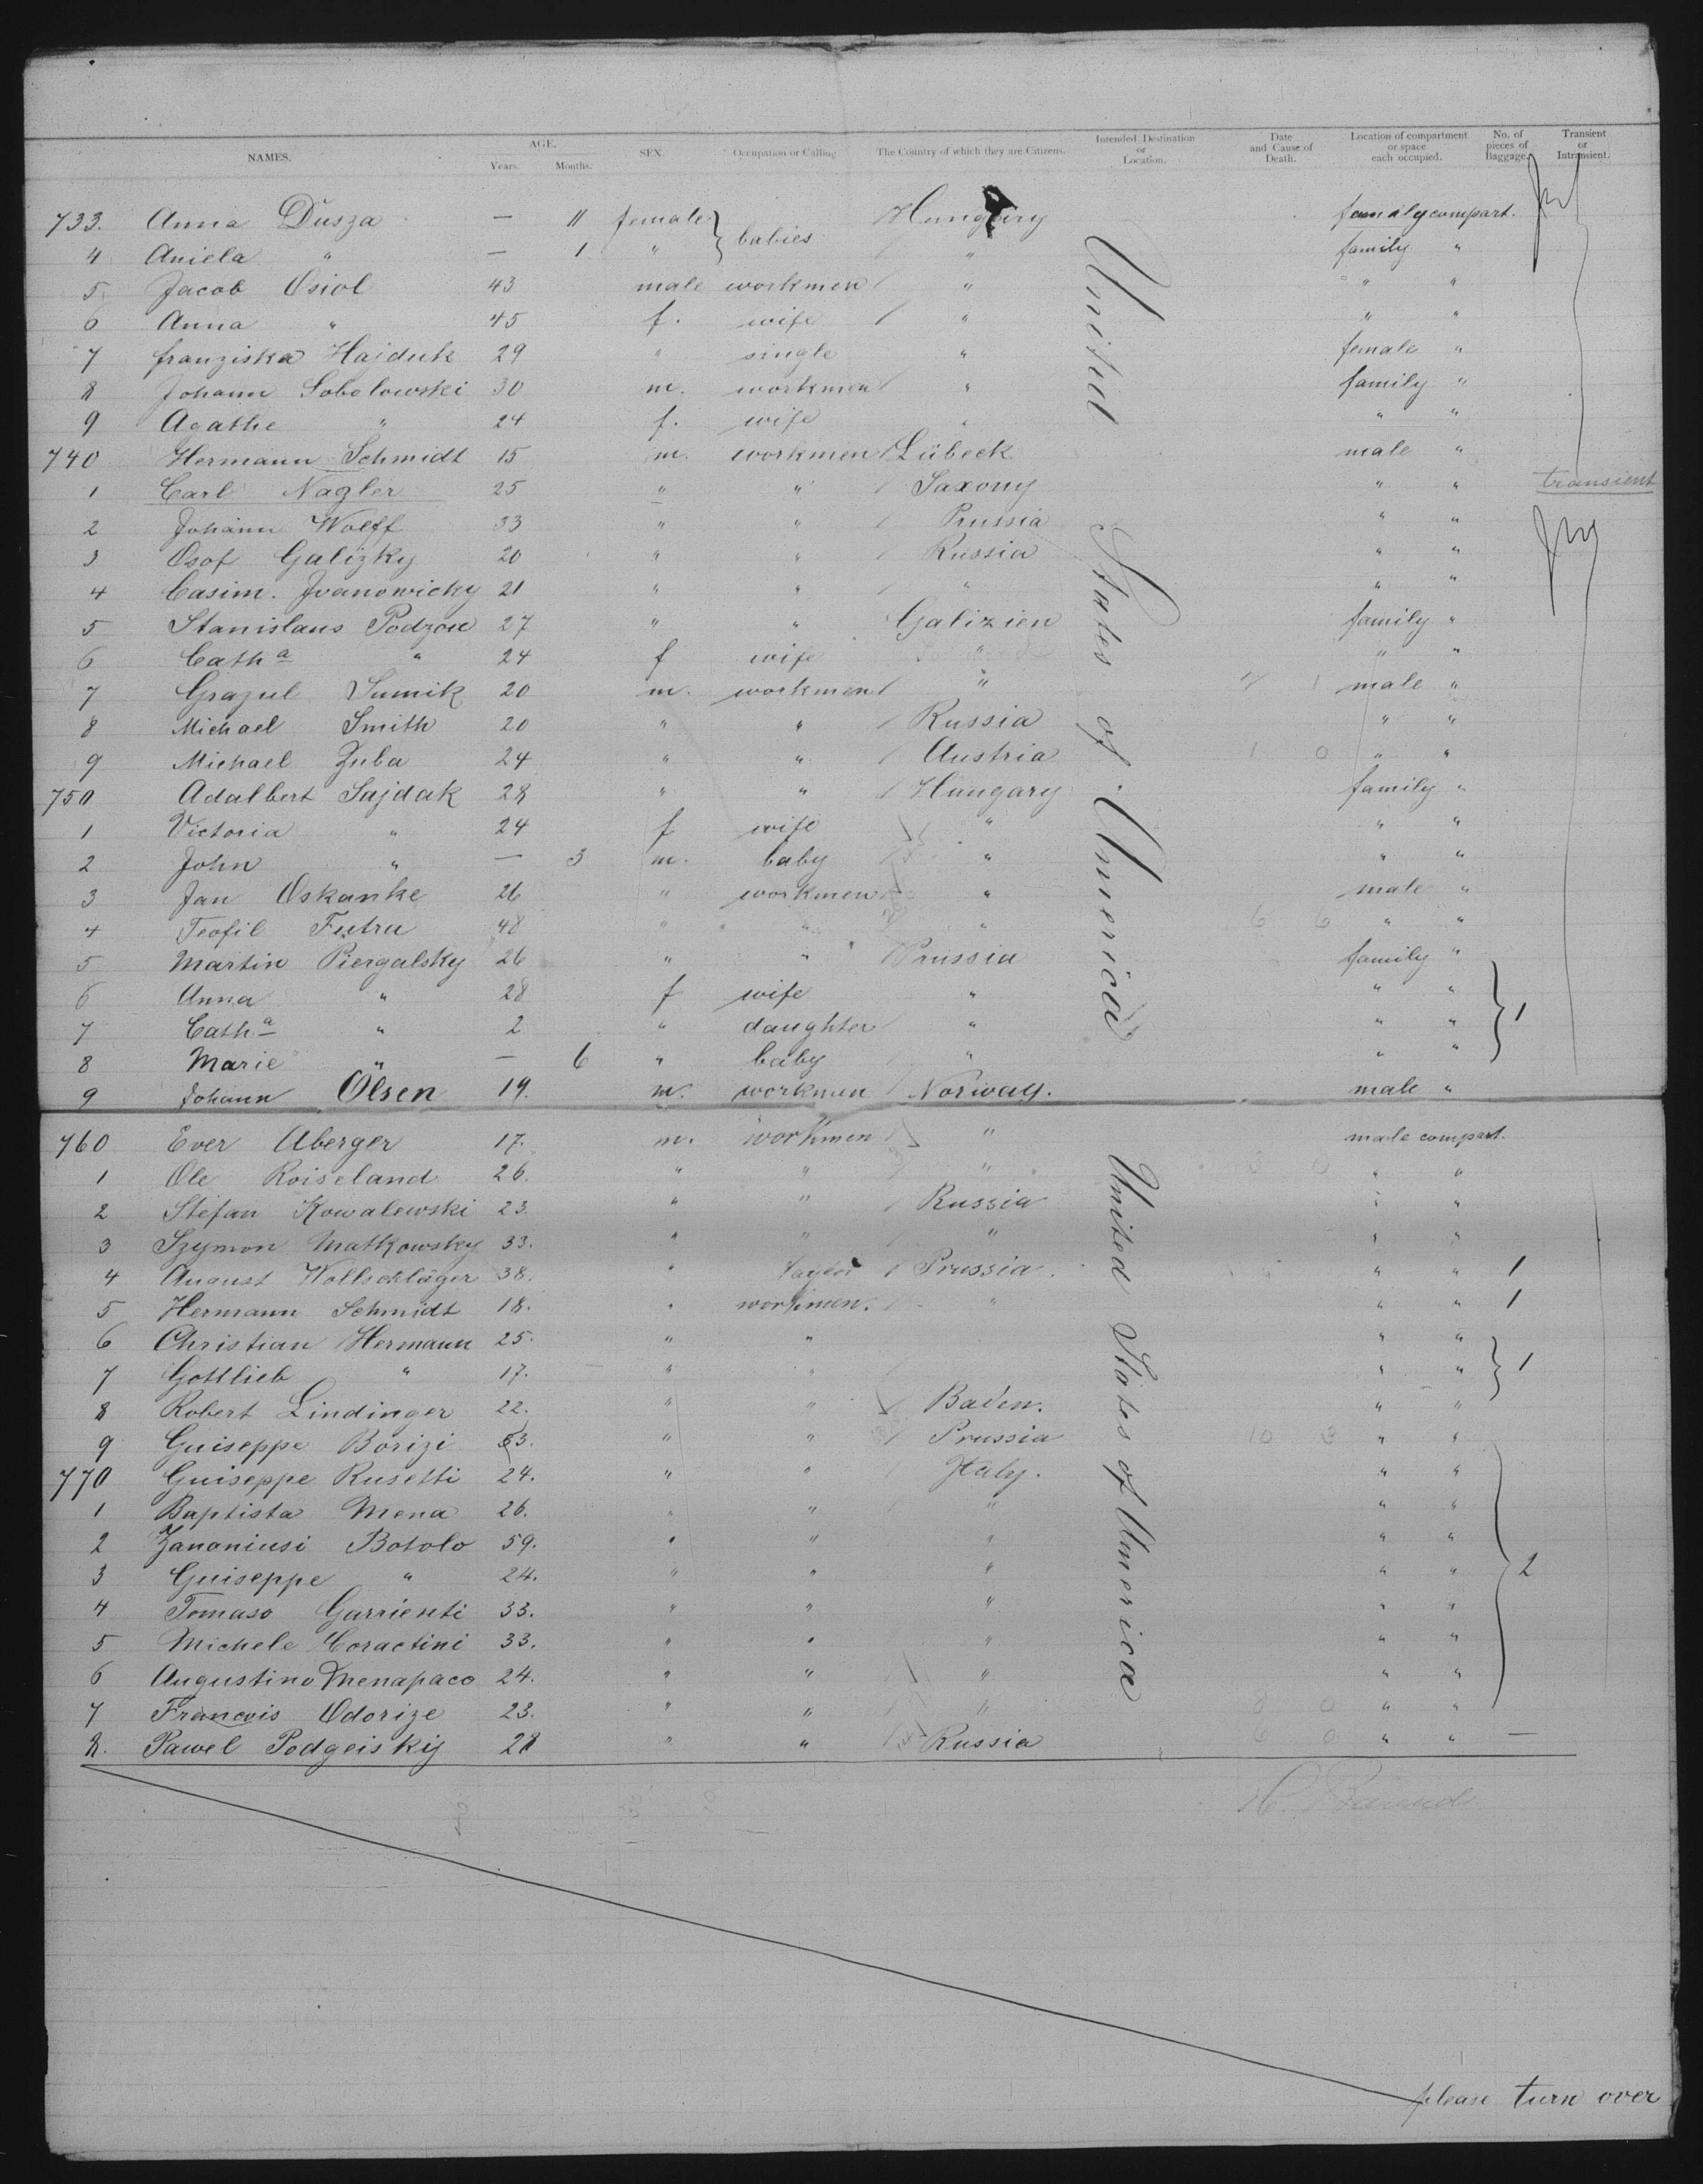 NAMES. AGE. Years. Months. SEX. Occupation or Calling The Country of which they are Citizens. Intended Destination or Location. Date and Cause of Death. Location of compartment or space each occupied. No. of pieces of Baggage. Transient or Intransient.
733. Anna Dusza — 11 female babies Hungary family compart.
4 Aniela " — 1 " " family "
5 Jacob Osiol 43 male workmen " " "
6 Anna " 45 f. wife " " "
7 franziska Hajduk 29 " single " female "
8 Johann Sobolowski 30 m. workmen " family "
9 Agathe " 24 f. wife " " "
740 Hermann Schmidt 15 m. workmen Lübeck male "
1 Carl Nagler 25 " " Saxony " " transient
2 Johann Wolff 33 " " Prussia " "
3 Osof Galizky 20 " " Russia " "
4 Casim. Jvanowicky 21 " " " " "
5 Stanislaus Podzou 27 " " Galizien family "
6 Cath a " 24 f wife " " "
7 Grazul Sumik 20 m. workmen " male "
8 Michael Smith 20 " " Russia " "
9 Michael Zuba 24 " " Austria 1 0 " "
750 Adalbert Sajdak 28 " " Hungary family "
1 Victoria " 24 f wife " " "
2 John " — 3 m. baby " " "
3 Jan Oskanke 26 " workmen " male "
4 Teofil Futru 48 " " " 6 6 " "
5 Martin Piergalsky 26 " " Prussia family "
6 Anna " 28 f wife " " "
7 Cath. a " 2 " daughter " " " 1
8 Marie " — 6 " baby " " "
9 Johann Olsen 19. m. workmen Norway. male "
United States of America
760 Ever Aberger 17. m. workmen " male compart.
1 Ole Roiseland 26. " " " " "
2 Stefan Kowalewski 23. " " Russia " "
3 Szymon Matkowsky 33. " " " " "
4 August Wollschläger 38. " Taylor Prussia. " " 1
5 Hermann Schmidt 18. " workmen. " " " 1
6 Christian Hermann 25. " " " "
7 Gottlieb " 17. " " " " 1
8 Robert Lindinger 22. " " Baden. " "
9 Guiseppe Borizi 53. " " Prussia 10 3 " "
770 Guiseppe Rusetti 24. " " Italy. " "
1 Baptista Mena 26. " " " " "
2 Zananiusi Botolo 59. " " " " "
3 Guiseppe " 24. " " " " " 2
4 Tomaso Garrienti 33. " " " " "
5 Michele Coractini 33. " " " " "
6 Augustino Menapaco 24. " " " " "
7 Francois Odorize 23. " " " 8 0 " "
8. Pawel Podgeiskij 28 " " Russia 6 0 " " —
United States of America
please turn over